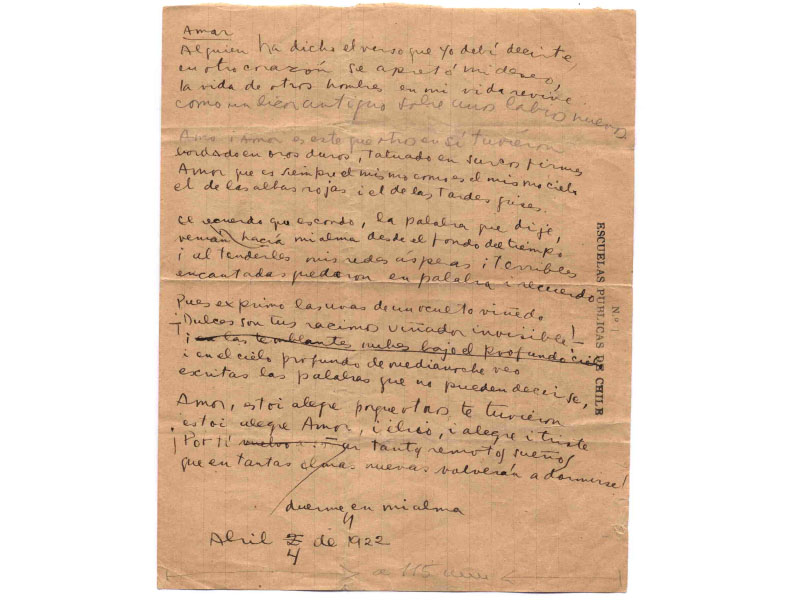 Amar
Alguien ha dicho el verso que yo debí decirte,
en otro corazón se apretó mi deseo,
la vida de otros hombres en mi vida revive
como un licor antiguo sobre unos labios nuevos
Amor es este que otros en sí tuvieron
bordado en oros duros, tatuado en surcos firmes
Amor que es siempre el mismo como es el mismo cielo
el de las albas rojas i el de las tardes grises.
El recuerdo que escondo, la palabra que dije,
venían hacia mi alma desde el fondo del tiempo
i al tenderles mis redes ásperas i terribles
encantadas quedaron en palabra i recuerdo
Pues exprimo las uvas de un oculto viñedo
¡Dulces son tus racimos viñador invisible!
i en las temblantes nubes bajo el profundo cielo
i en el cielo profundo de medianoche veo
escritas las palabras que no pueden decirse,
Amor, estoi alegre porque otros te tuvieron
estoi alegre Amor, i alegre i triste
¡Por tí vuelvo a tantos remotos sueños
que en tantas almas nuevas volverán a dormirse!
duermen en mi alma
Abril 4 de 1922
a 115 mm
Nº 1
ESCUELAS PUBLICAS DE CHILE